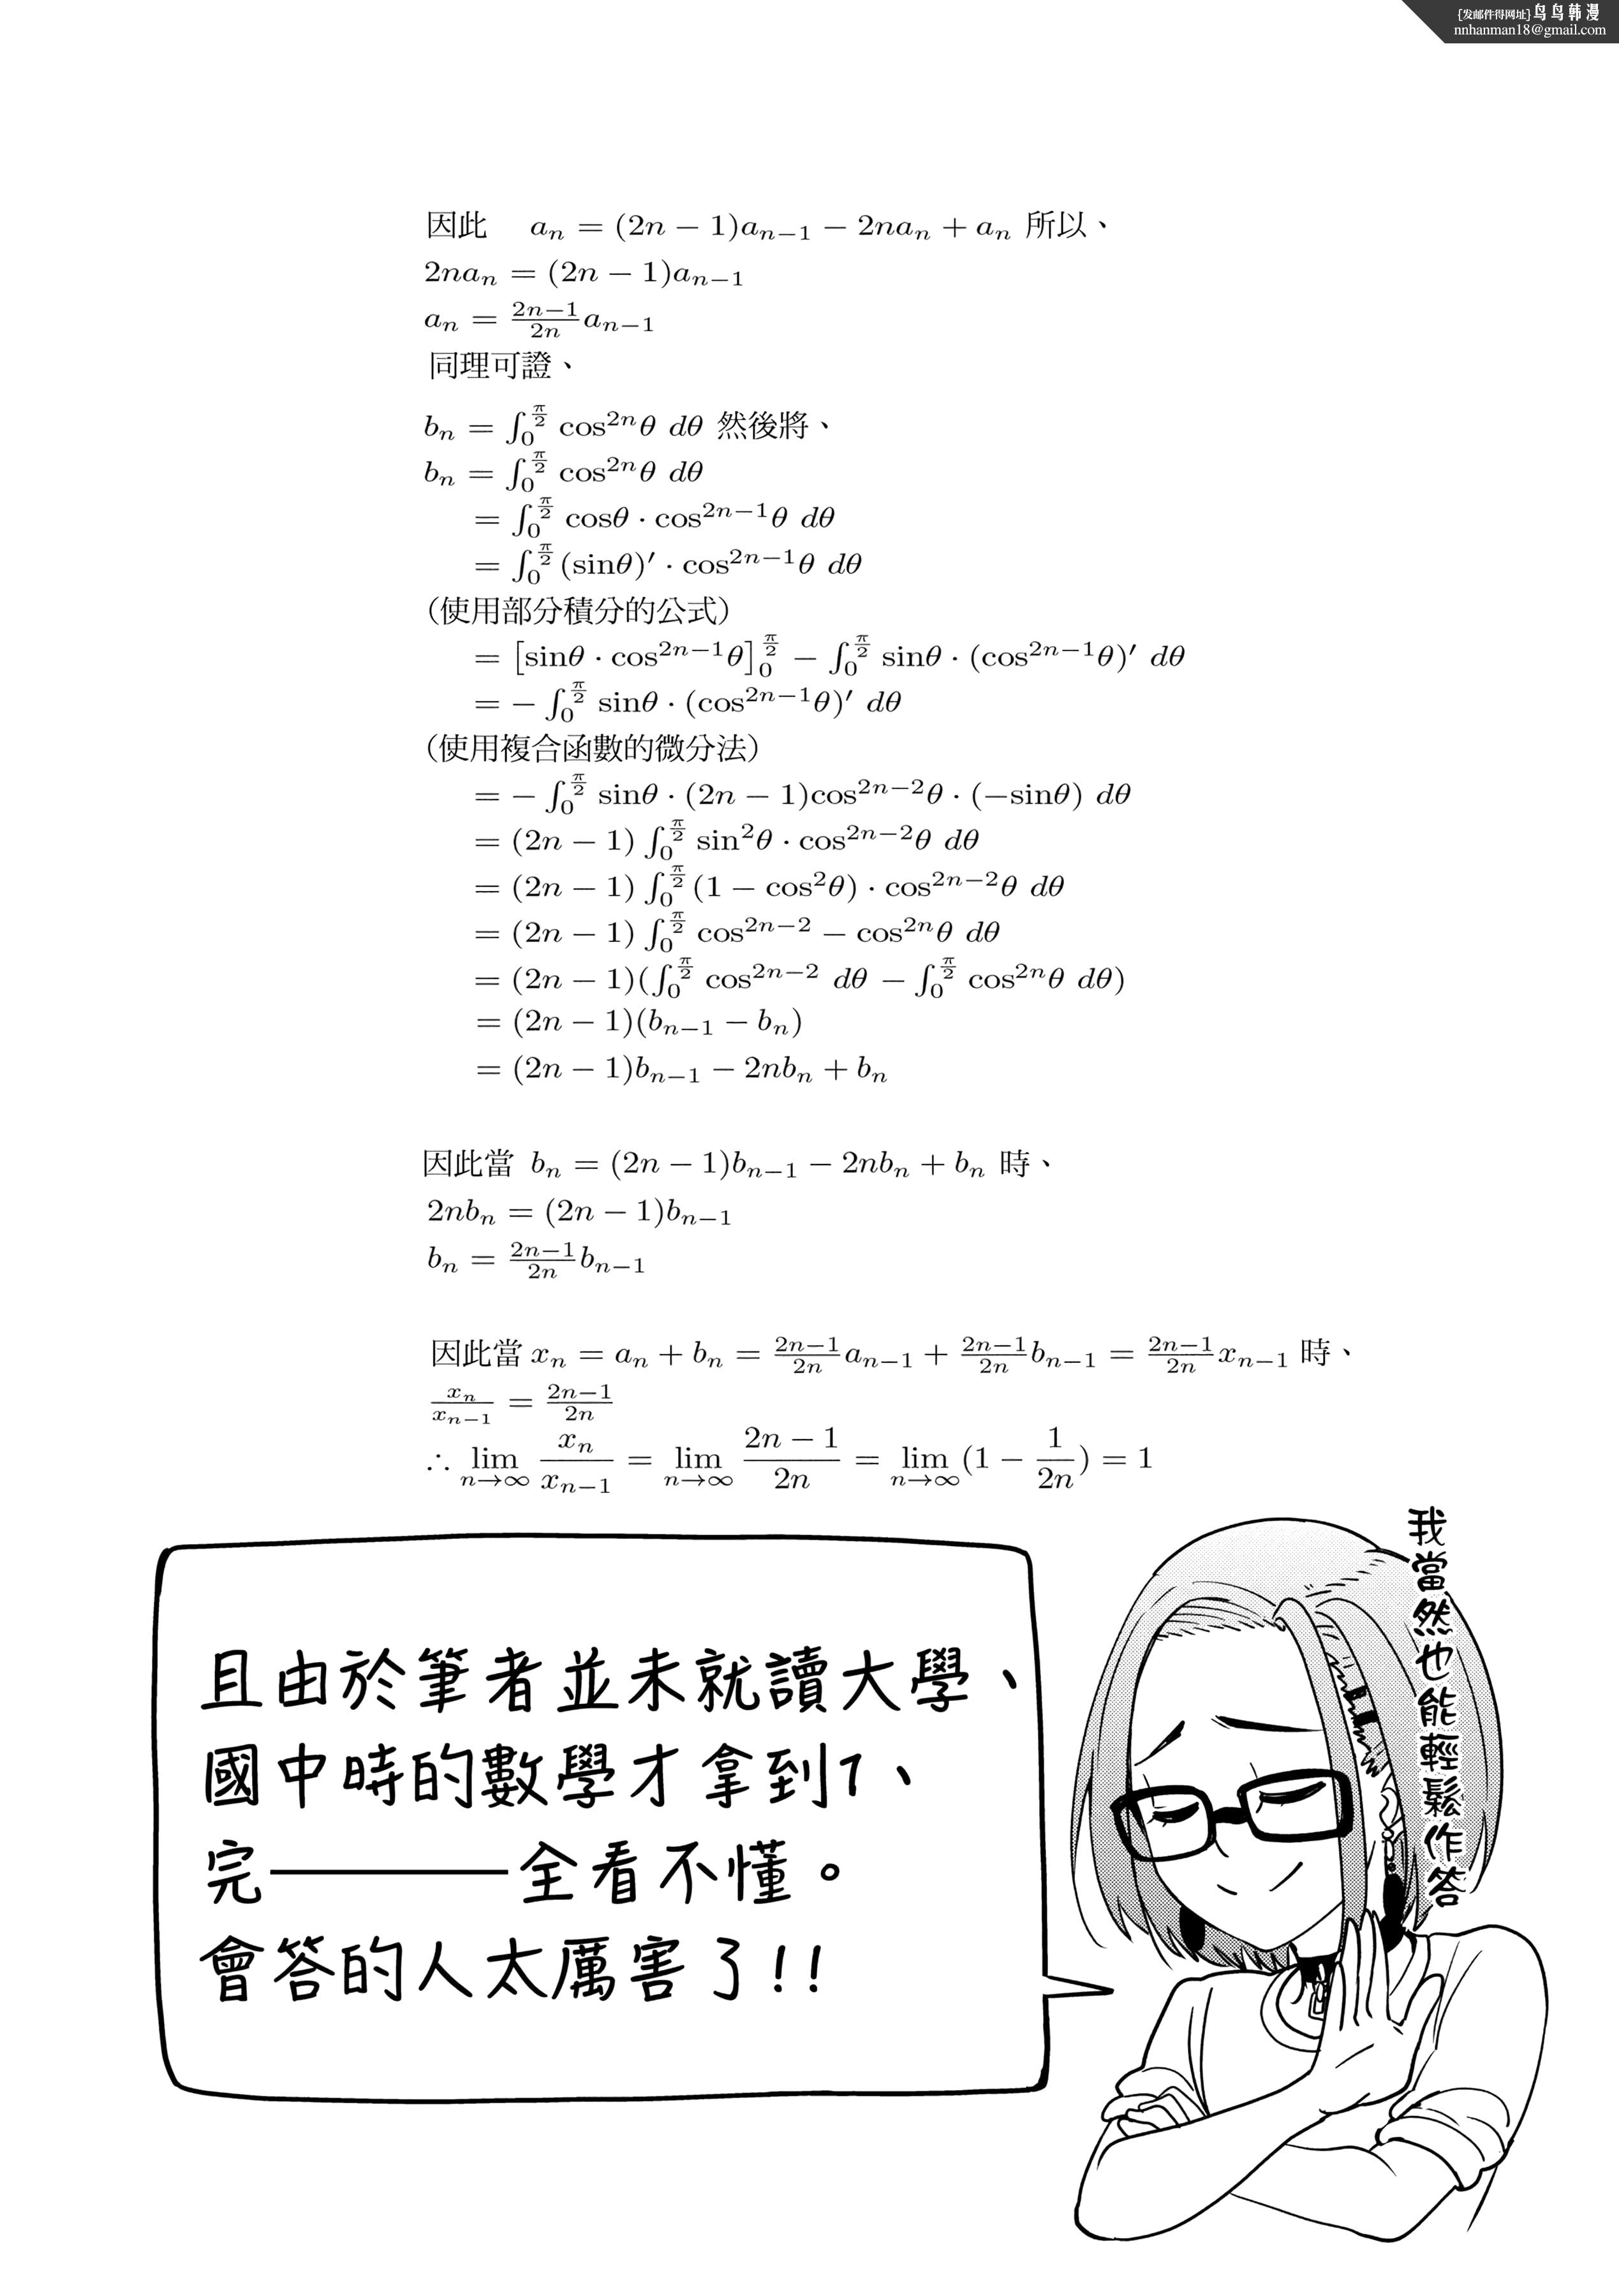 [发邮件得网址] 鸟鸟韩漫
nnhanman18@gmail.com
因此 aₙ = (2n − 1)aₙ₋₁ − 2naₙ + aₙ 所以、
2naₙ = (2n − 1)aₙ₋₁
aₙ = \frac{2n−1}{2n} aₙ₋₁
同理可證、
bₙ = ∫_0^{\frac{π}{2}} cos^{2n}θ dθ 然後將、
bₙ = ∫_0^{\frac{π}{2}} cos^{2n}θ dθ
= ∫_0^{\frac{π}{2}} cosθ · cos^{2n−1}θ dθ
= ∫_0^{\frac{π}{2}} (sinθ)′ · cos^{2n−1}θ dθ
（使用部分積分的公式）
= [sinθ · cos^{2n−1}θ]_0^{\frac{π}{2}} − ∫_0^{\frac{π}{2}} sinθ · (cos^{2n−1}θ)′ dθ
= − ∫_0^{\frac{π}{2}} sinθ · (cos^{2n−1}θ)′ dθ
（使用複合函數的微分法）
= − ∫_0^{\frac{π}{2}} sinθ · (2n − 1)cos^{2n−2}θ · (−sinθ) dθ
= (2n − 1) ∫_0^{\frac{π}{2}} sin²θ · cos^{2n−2}θ dθ
= (2n − 1) ∫_0^{\frac{π}{2}} (1 − cos²θ) · cos^{2n−2}θ dθ
= (2n − 1) ∫_0^{\frac{π}{2}} cos^{2n−2} − cos^{2n}θ dθ
= (2n − 1)(∫_0^{\frac{π}{2}} cos^{2n−2} dθ − ∫_0^{\frac{π}{2}} cos^{2n}θ dθ)
= (2n − 1)(bₙ₋₁ − bₙ)
= (2n − 1)bₙ₋₁ − 2nbₙ + bₙ
因此當 bₙ = (2n − 1)bₙ₋₁ − 2nbₙ + bₙ 時、
2nbₙ = (2n − 1)bₙ₋₁
bₙ = \frac{2n−1}{2n} bₙ₋₁
因此當 xₙ = aₙ + bₙ = \frac{2n−1}{2n} aₙ₋₁ + \frac{2n−1}{2n} bₙ₋₁ = \frac{2n−1}{2n} xₙ₋₁ 時、
\frac{xₙ}{xₙ₋₁} = \frac{2n−1}{2n}
∴ \lim_{n→∞} \frac{xₙ}{xₙ₋₁} = \lim_{n→∞} \frac{2n − 1}{2n} = \lim_{n→∞} (1 − \frac{1}{2n}) = 1
我當然也能輕鬆作答
且由於筆者並未就讀大學、
國中時的數學才拿到1、
完————全看不懂。
會答的人太厲害了!!